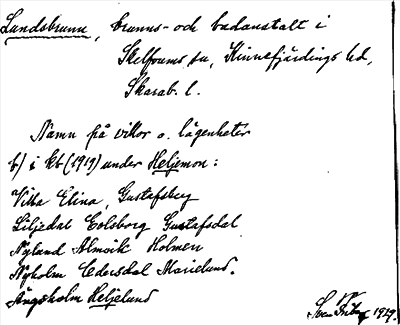 Lundsbrunn, brunns- och badanstalt i
Skelfvums sn, Kinnefjärdings hd,
Skarab. l.
Namn på villor o. lägenheter
b) i kb (1919) under Heljemon:
Villa Elina, Gustafsberg
Liljedal Colsborg Gustafsdal
Nyland Almvik Holmen
Nyholm Cedersdal Marielund.
Ängsholm Heljelund
1929.